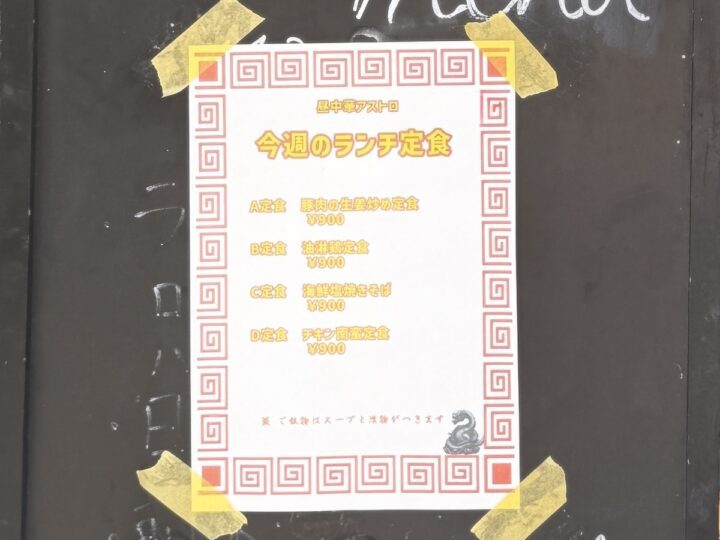 menu
昼中華アストロ
今週のランチ定食
A定食 豚肉の生姜炒め定食
¥900
B定食 油淋鶏定食
¥900
C定食 海鮮塩焼きそば
¥900
D定食 チキン南蛮定食
¥900
ご飯物はスープと漬物がつきます